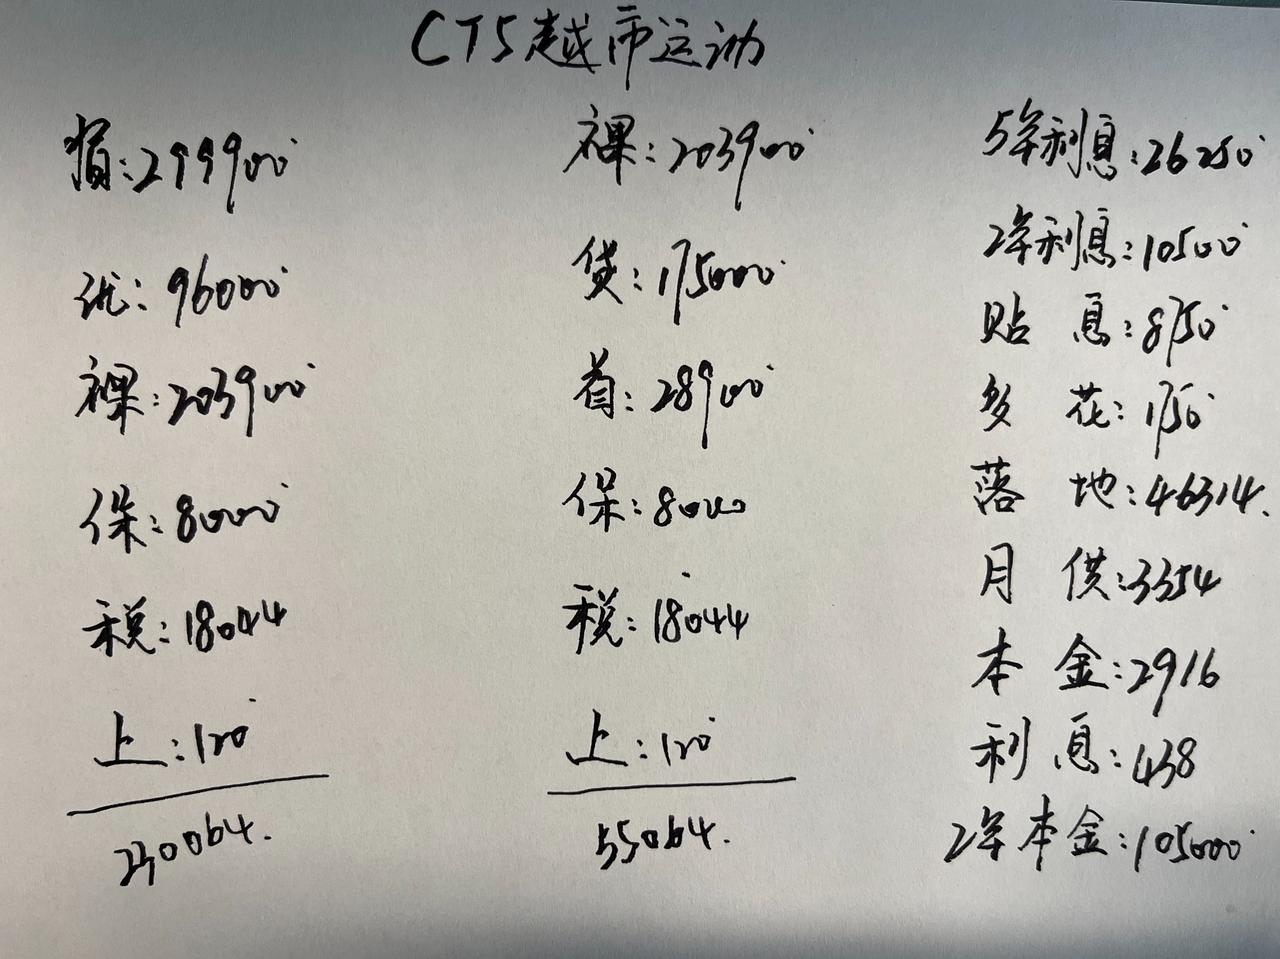 CT5越市运动
指:299900
优:96000
裸:203900
保:8000
税:18044
上:120
230064.
裸:203900
贷:175000
首:28900
保:8000
税:18044
上:120
55064.
5年利息:26250
2年利息:10500
贴息:8750
多花:1750
落地:46314.
月供:3354
本金:2916
利息:438
2年本金:105000